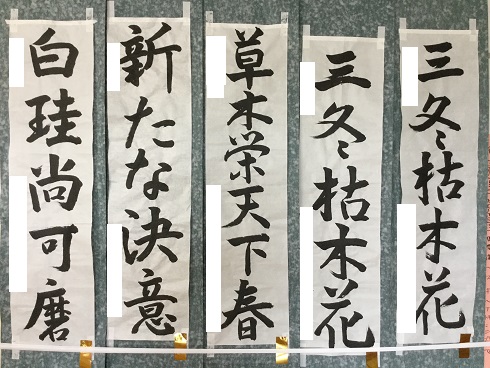 三冬枯木花
三冬枯木花
草木栄天下春
新たな決意
白珪尚可磨